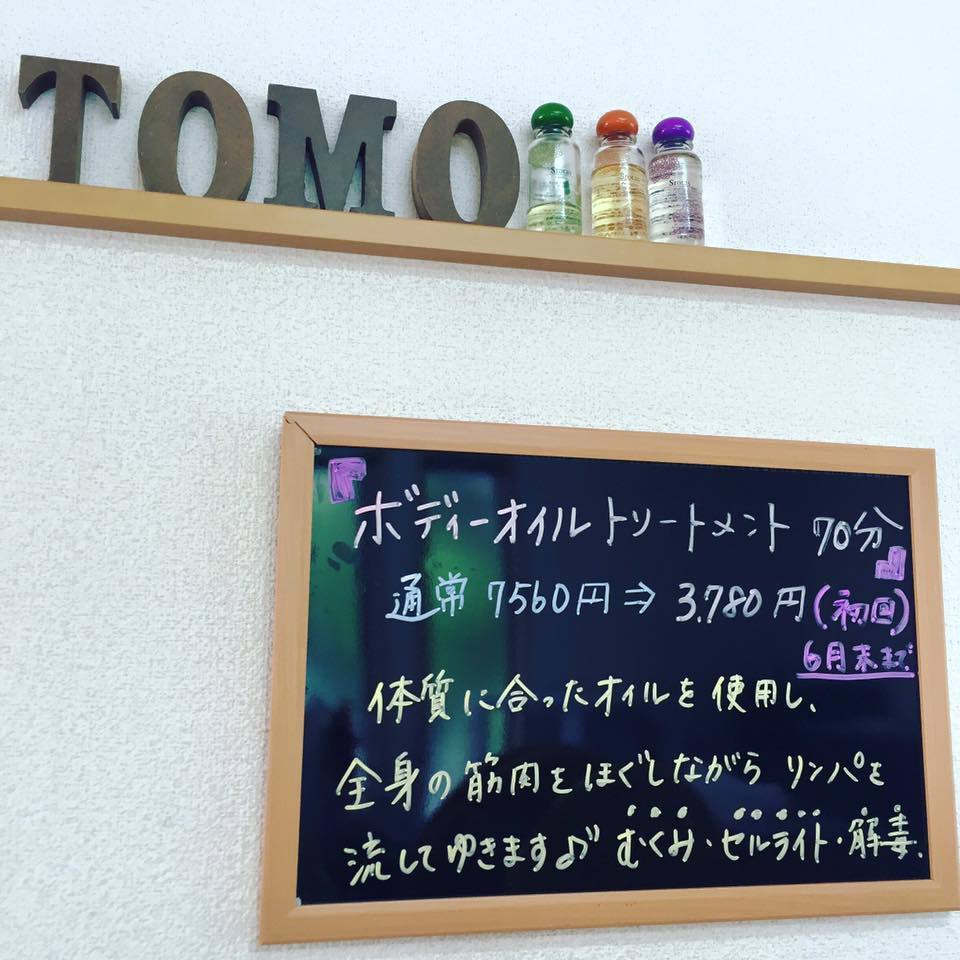 TOMO
Stocas
Stocas
Stocas
「ボディーオイルトリートメント 70分」
通常 7560円⇒3,780円(初回)
6月末まで
体質に合ったオイルを使用し、
全身の筋肉をほぐしながら リンパを
流してゆきます♪ むくみ・セルライト・解毒.